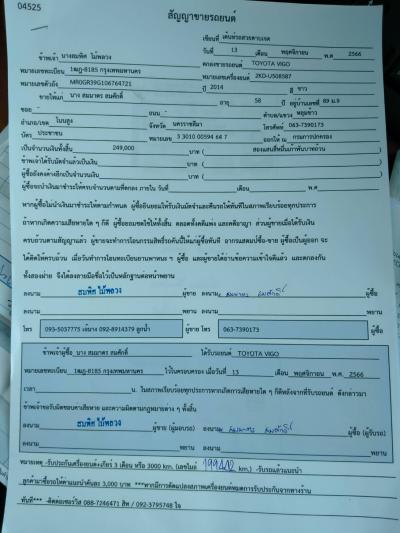 04525
สัญญาขายรถยนต์
เขียนที่ เต็นท์รถสวยตาบเจด
วันที่ 13 เดือน พฤศจิกายน พ.ศ. 2566
ข้าพเจ้า นางสมทิศ ไม้พลวง ตกลงขายรถยนต์ TOYOTA VIGO
หมายเลขทะเบียน 1ฒฎ-8185 กรุงเทพมหานคร หมายเลขเครื่องยนต์ 2KD-U508587
หมายเลขตัวถัง MR0GR39G106764721 ปี 2014 สี ขาว
ขายให้แก่ นาง สมมาตร สมศักดิ์ อายุ 58 ปี อยู่บ้านเลขที่ 89 ม.9
ซอย - ถนน - ตำบล/แขวง หลุมข้าว
อำเภอ/เขต โนนสูง จังหวัด นครราชสีมา โทรศัพท์ 063-7390173
บัตร ประชาชน หมายเลข 3 3010 00594 64 7 ออกให้ ณ กรมการปกครอง
เป็นจำนวนเงินทั้งสิ้น 249,000 บาท ( สองแสนสี่หมื่นเก้าพันบาทถ้วน )
ข้าพเจ้าได้รับมัดจำแล้วเป็นเงิน บาท ( )
ผู้ซื้อยังคงค้างอีกเป็นจำนวนเงิน บาท ( )
ผู้ซื้อจะนำเงินมาชำระให้ครบจำนวนตามที่ตกลง ภายใน วันที่ เดือน พ.ศ
หากผู้ซื้อไม่นำเงินมาชำระให้ตามกำหนด ผู้ซื้อยินยอมให้ริบเงินมัดจำและคืนรถให้ทันทีในสภาพเรียบร้อยทุกประการ
ถ้าหากเกิดความเสียหายใด ๆ ก็ดี ผู้ซื้อยอมชดใช้ให้ทั้งสิ้น ตลอดทั้งคดีแพ่ง และคดีอาญา ส่วนผู้ขายเมื่อได้รับเงิน
ครบถ้วนตามสัญญาแล้ว ผู้ขายจะทำการโอนกรรมสิทธิ์รถคันนี้ให้แก่ผู้ซื้อทันที อากรแสตมป์ซื้อ-ขาย ผู้ซื้อเป็นผู้ออก จะ
ได้ติดไว้ครบถ้วน เมื่อวันทำการโอนทะเบียนยานพาหนะ ฯ ผู้ซื้อ และผู้ขายได้อ่านข้อความเข้าใจดีแล้ว และตกลงกัน
ทั้งสองฝ่าย จึงได้ลงลายมือชื่อไว้เป็นหลักฐานต่อหน้าพยาน
ลงนาม สมทิศ ไม้พลวง ผู้ขาย ลงนาม สมมาตร สมศักดิ์ ผู้ซื้อ
ลงนาม พยาน ลงนาม พยาน
โทร 093-5037775 092-8914379 ลูกน้ำ ผู้ขาย โทร 063-7390173 ผู้ซื้อ
ข้าพเจ้าผู้ซื้อ นาง สมมาตร สมศักดิ์ ได้รับรถยนต์ TOYOTA VIGO
หมายเลขทะเบียน 1ฒฎ-8185 กรุงเทพมหานคร ไว้ในครอบครอง เมื่อวันที่ 13 เดือน พฤศจิกายน พ.ศ. 2566
เวลา น. ในสภาพเรียบร้อยทุกประการหากเกิดการเสียหายใด ๆ ก็ดีหลังจากที่รับรถยนต์ ดังกล่าวมา
ข้าพเจ้าขอรับผิดชอบค่าเสียหาย และความผิดตามกฎหมายต่าง ๆ ทั้งสิ้น
ลงนาม สมทิศ ไม้พลวง ผู้ขาย (ผู้มอบรถ) ลงนาม สมมาตร สมศักดิ์ ผู้ซื้อ (ผู้รับรถ)
ลงนาม พยาน ลงนาม พยาน
หมายเหตุ -รับประกันเครื่องยนต์+เกียร์ 3 เดือน หรือ 3000 km. (เลขไมล์ 199442 km.) -รับรถแล้วแนะนำ
ลูกค้ามาซื้อรถให้ค่าแนะนำคันละ 3,000 บาท ***หากมีการดัดแปลงสภาพเครื่องยนต์หมดการรับประกันจากทางร้าน
ทันที*** -ติดต่อเซอร์วิส 088-7246471 สิห / 092-3795748 ใจ